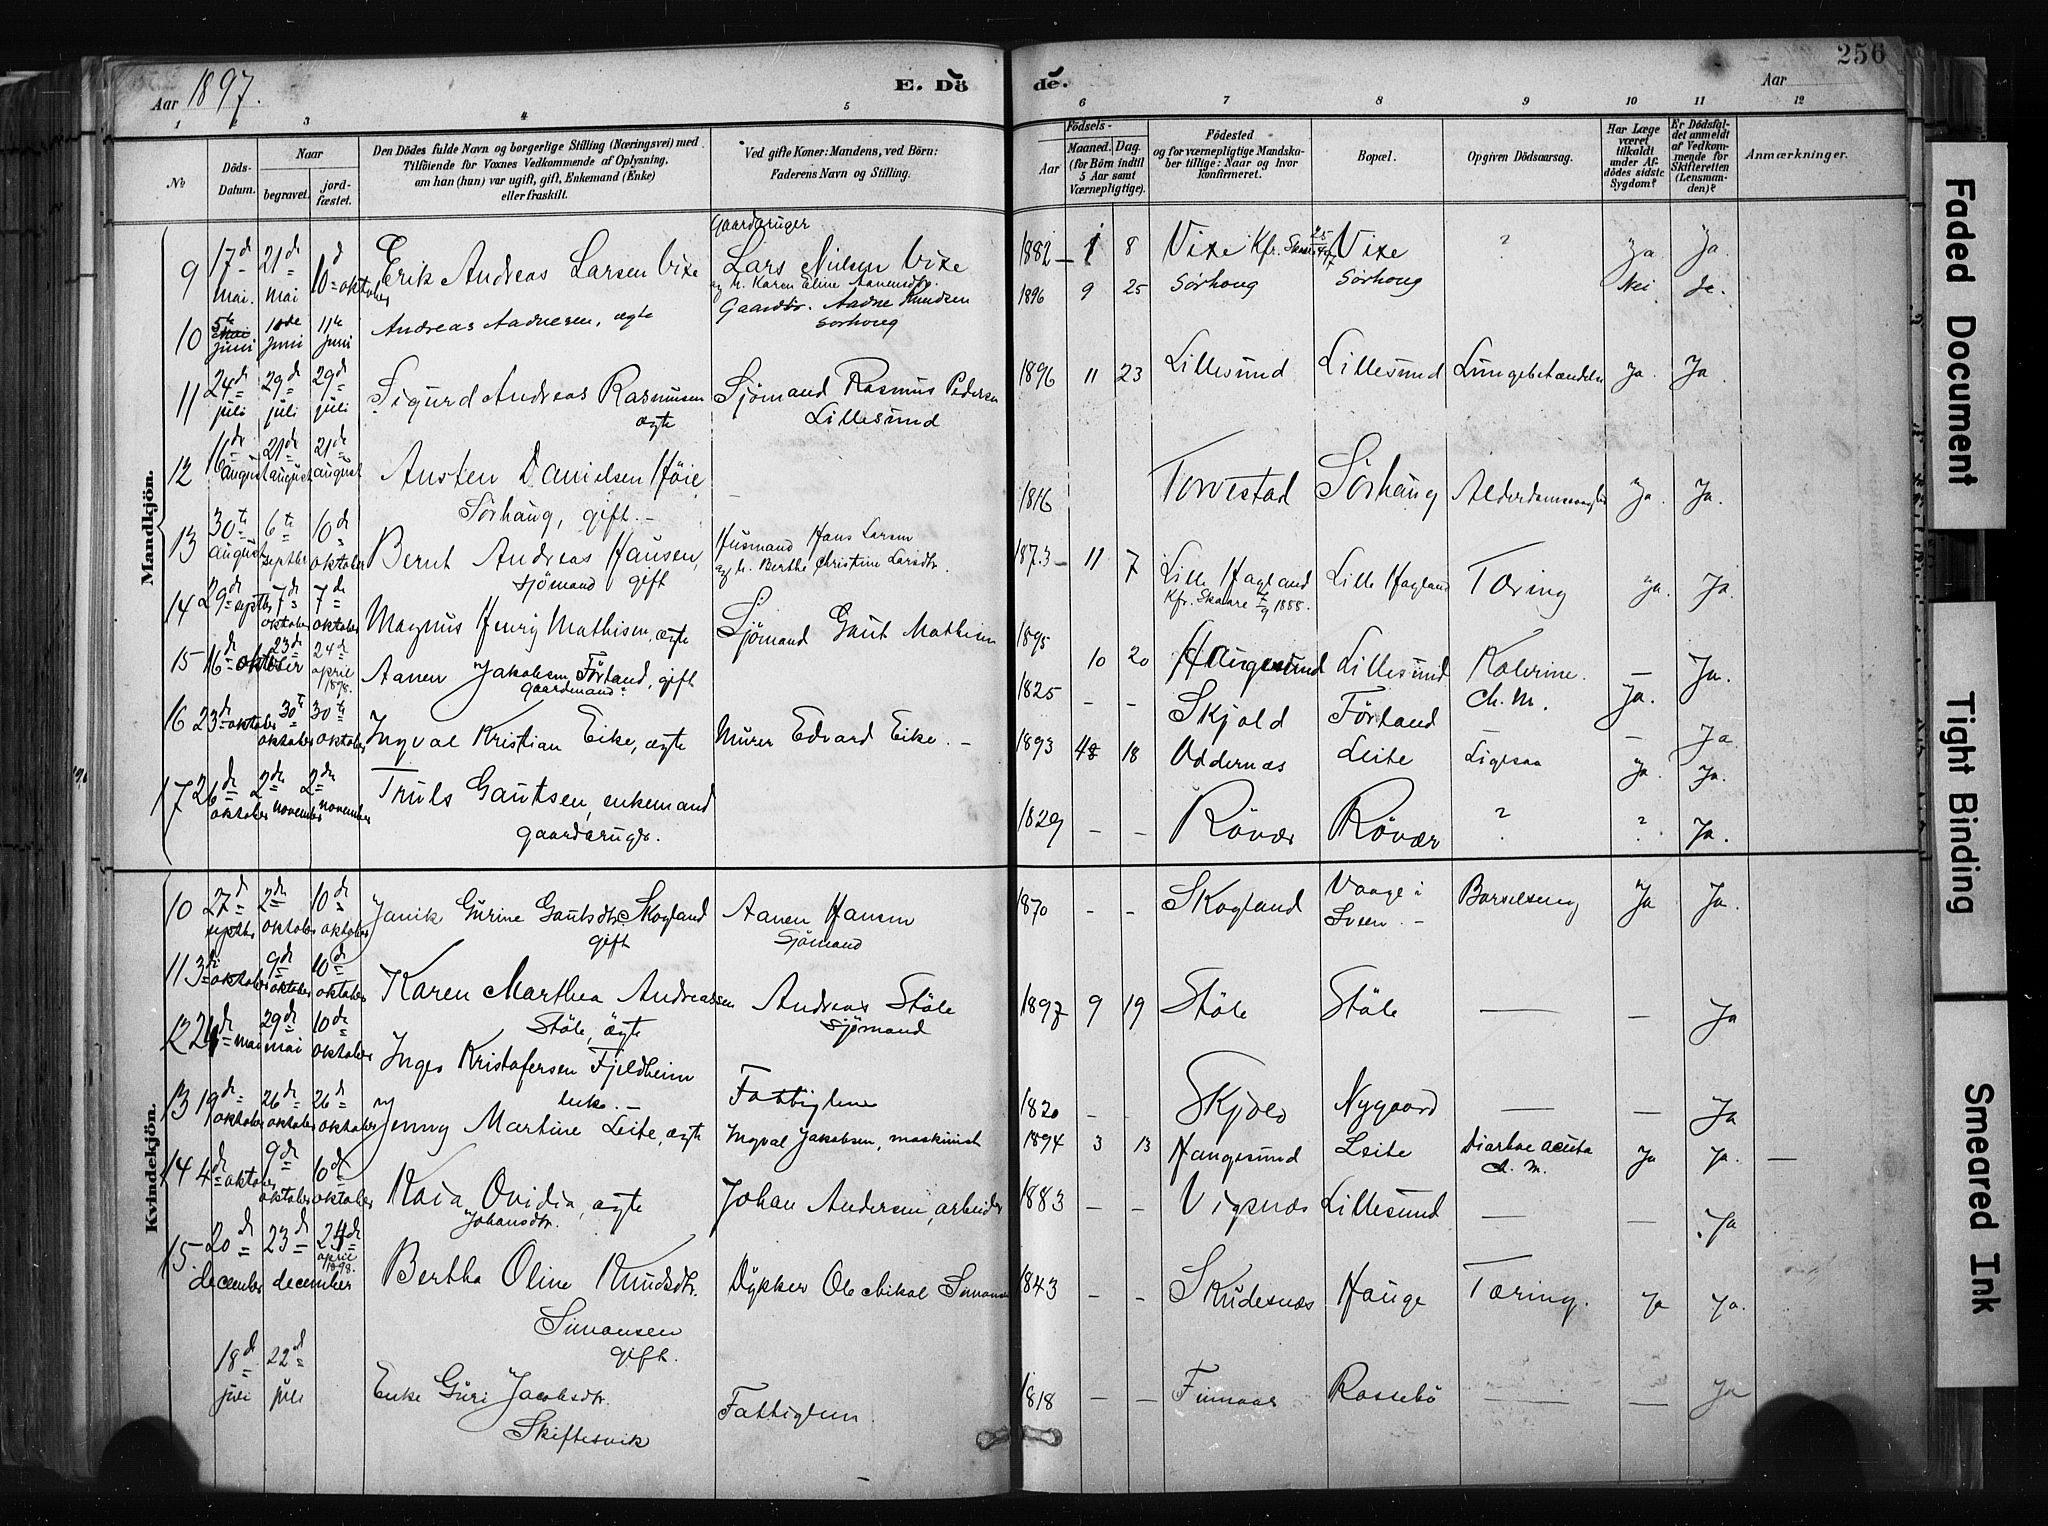 256
Aar 1897.
E. Dö
de.
Aar
1 2 3 4 5 6 7 8 9 10 11 12
№
Döds-Datum.
Naar
begravet.
jord-fæstet.
Den Dödes fulde Navn og borgerlige Stilling (Næringsvei) med
Tilföiende for Voxnes Vedkommende af Oplysning,
om han (hun) var ugift, gift, Enkemand (Enke)
eller fraskilt.
Ved gifte Koner: Mandens, ved Börn:
Faderens Navn og Stilling.
Födsels-
Aar
Maaned. Dag.
(for Börn indtil
5 Aar samt
Værnepligtige).
Födested
og for værnepligtige Mandska-
ber tillige: Naar og hvor
konfirmeret.
Bopæl.
Opgiven Dödsaarsag.
Har Læge
været
tilkaldt
under Af-
dödes sidste
Sygdom?
Er Dödsfal-
det anmeldt
af Vedkom-
mende for
Skifteretten
(Lensman-
den)?
Anmærkninger.
Mandkjön.
9 17de mai. 21de mai 10de oktober Erik Andreas Larsen Vixe Gaardbruger Lars Nielsen Vixe og h. Karen Eline 1882 1 8 Vixe Kfr. Vixe ? Ja. Ja.
10 5te juni 10de juni 11te juni Andreas Aadnesen, ægte Gaardbr. Aadne Knudsen Sorhoug 1896 9 25 Sørhoug Sørhoug Nei
11 24de juli 29de juli 29de juli Sigurd Andreas Rasmusen ægte Sjömand Rasmus Pedersen Lillesund 1896 11 23 Lillesund Lillesund Lungebetændelse Ja. Ja.
12 16de august 21de august 21de august Austen Danielsen Høie, Sørhaug, gift. — 1816 Torvestad Sörhaug Ja. Ja.
13 30te august 6te septber 10de oktober Bernt Andreas Hansen, sjömand gift Husmand Hans Larsen og h. Berthe Christine Larsdtr. 1873 11 7 Lille Hagland Kfr. Skaare 1888. Lille Hagland Tæring Ja. Ja.
14 29de septber 7de oktober 7de oktober Magnus Henry Mathisen, ægte Sjömand Gaut Mathisen 1895 10 20 Haugesund Lillesund Kolerine. — Ja.
15 16de oktober 23de 24de april 1898. Aanen Jakobsen Förland, gift gaardmand 1825 — — Skjold Förland Ch. M. Ja. Ja.
16 23de oktober 30te oktober 30te oktober Ingval Kristian Eike, ægte Murer Edvard Eike. — 1893 18 Oddernæs Leite Ja. Ja.
17 26de oktober 2den november 2den november Truls Gautsen, enkemand gaardbruger. 1829 — — Rövær Rövær ? ? Ja.
Kvindekjön.
10 27de septbr 2den oktober 10de oktober Janik Gurine Gautsdtr. Skogland gift Aanen Hansen Sjömand 1870 — — Skogland Vaage i Sveen. — Barselseng Ja Ja.
11 3die oktober 9de oktober 10de oktober Karen Marthea Andreassen Stöle, ægte Andreas Stöle Sjømand 1897 9 19 Stöle Stöle — — Ja
12 mai 29de mai 10de oktober Inger Kristofersen Fjeldheim enke. — Fattiglem 1820 — — Skjold Nygaard — — Ja
13 19de oktober 26de oktober 26de oktober Jenny Martine Leite, ægte Ingval Jakobsen, maskinist 1894 3 13 Haugesund Leite Diarhae acuta ch. M. Ja Ja. —
14 4de oktober 9de oktober oktober Kaia Ovidia, ægte Johansdtr. Johan Andersen, arbeider 1883 — — Vigsnæs Lillesund — — Ja
15 20de december 23de december 24de april 1898. Bertha Oline Knudsdtr. Simonsen gift. Dykker Ole Nikol Simonsen 1843 — — Skudesnæs Hauge Tæring. Ja Ja.
18de juli 22de juli Enke Guri Jacobsdtr. Skiftesvik Fattiglem. 1818 — — Finnaas Rossebö — — Ja
Faded Document
Tight Binding
Smeared Ink